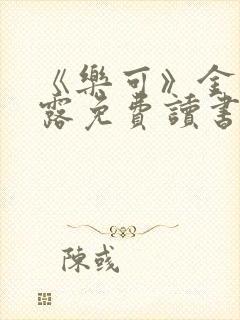 《樂可》金
露免費讀書
陳彧